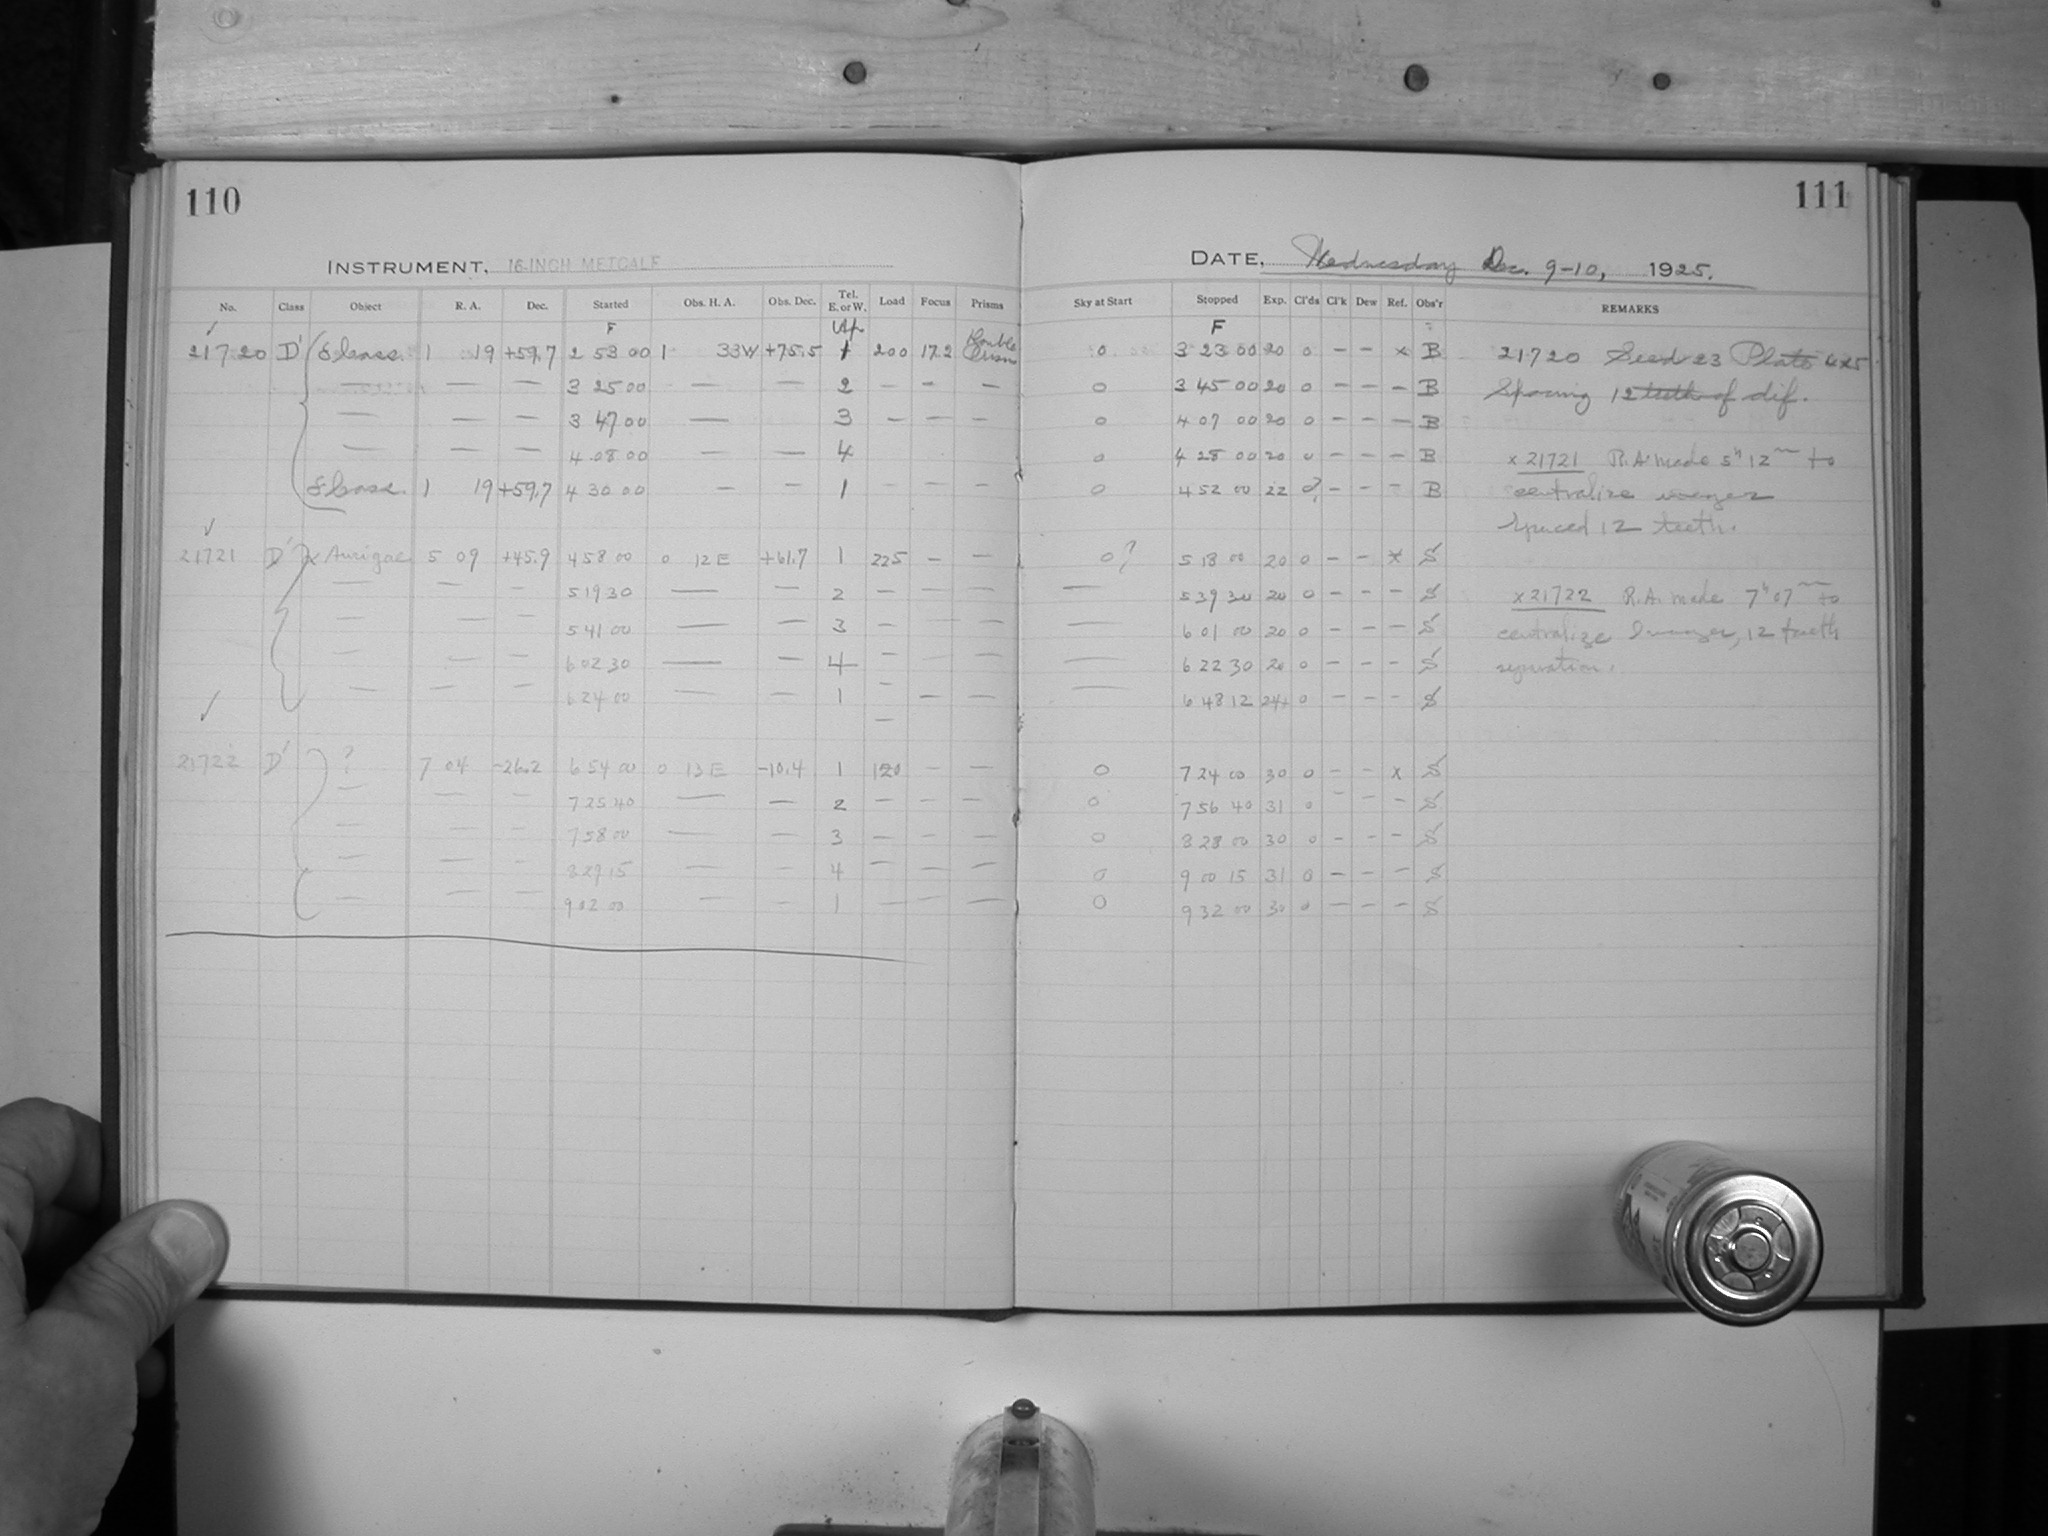 110
111
INSTRUMENT, 16-INCH METCALF
DATE, Wednesday Dec. 9-10, 1925.
No. Class Object R. A. Dec. Started Obs. H. A. Obs. Dec. Tel. E. or W. Load Focus Prisms Sky at Start Stopped Exp. Cl'ds Cl'k Dew Ref. Obs'r REMARKS
F F
21720 D' δ Cass. 1 19 +59.7 2 53 00 1 33W +75.5 1 200 17.2 Double Prism 0 3 23 00 20 0 — — x B 21720 Seed 23 Plate
— — — 3 25 00 — — 2 — — — 0 3 45 00 20 0 — — — B Spacing 12 teeth of dif.
— — — 3 47 00 — 3 — — — 0 4 07 00 20 0 — — — B
— — — 4 08 00 — — 4 0 4 28 00 20 0 — — — B x 21721 R.A. made 5h 12m to
δ Cass. 1 19 +59.7 4 30 00 — — 1 — — — 0 4 52 00 22 0? — — — B centralize images
Spaced 12 teeth.
21721 D' x Aurigae 5 09 +45.9 4 58 00 0 12 E +61.7 1 225 — — 0? 5 18 00 20 0 — — x S
— — — 5 19 30 — — 2 — — — — 5 39 30 20 0 — — — S x 21722 R.A. made 7h 07m to
— — — 5 41 00 — — 3 — — — — 6 01 00 20 0 — — — S centralize Images, 12 teeth
— — — 6 02 30 — — 4 — — — — 6 22 30 20 0 — — — S separation.
— — — 6 24 00 — — 1 — — — — 6 48 12 24+ 0 — — — S
21722 D' ? 7 04 -26.2 6 54 00 0 13 E -10.4 1 120 — — 0 7 24 00 30 0 — — x S
— — — 7 25 40 — — 2 — — — 0 7 56 40 31 0 — — — S
— — — 7 58 00 — — 3 — — — 0 8 28 00 30 0 — — — S
— — — 8 29 15 — — 4 — — — 0 9 00 15 31 0 — — — S
— — — 9 02 00 — — 1 — — — 0 9 32 00 30 0 — — — S